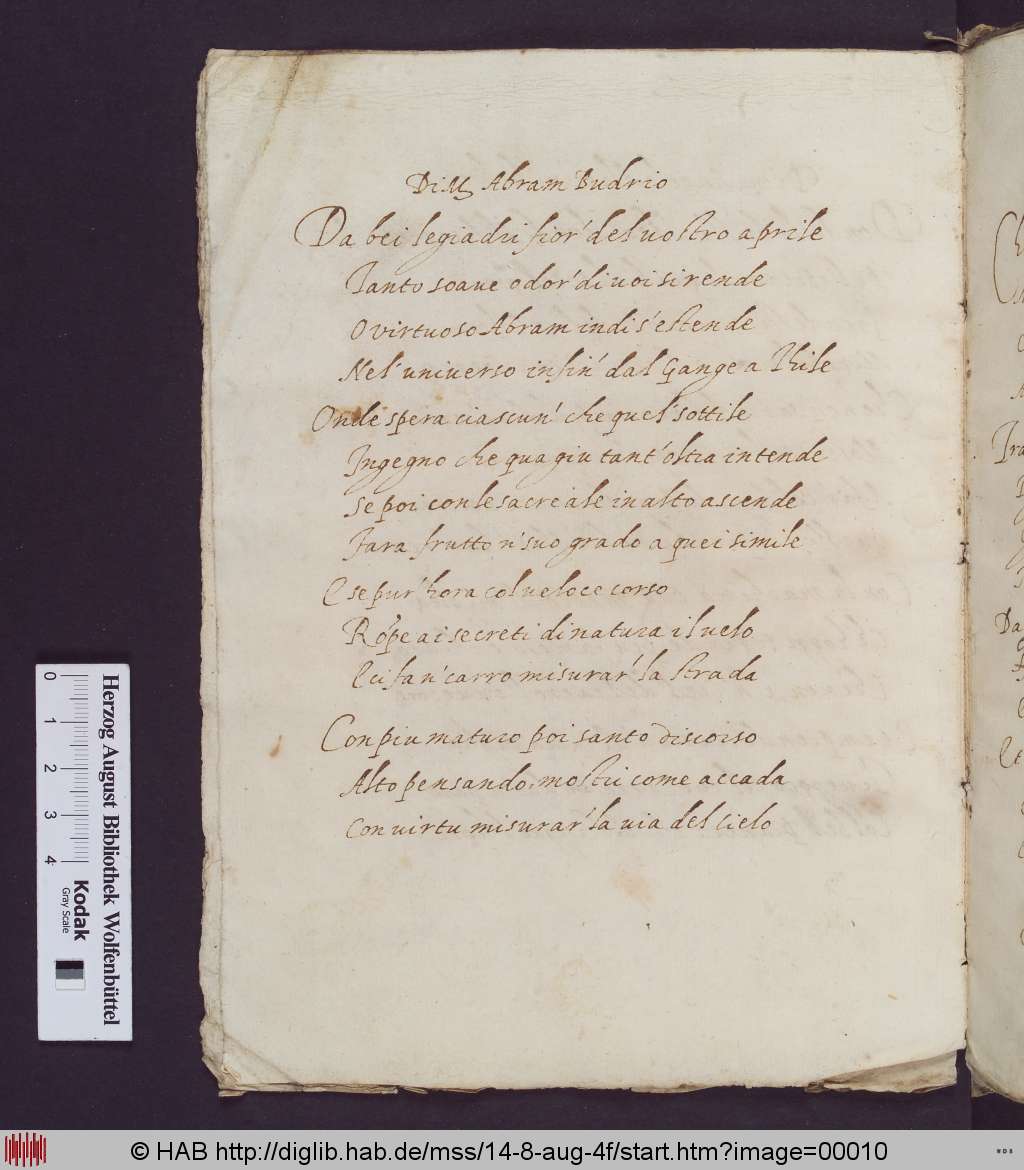 Di M. Abram Budrio
Da bei legiadri fior' del vostro aprile
Tanto soave odor' di voi si rende
O virtuoso Abram indi s'estende
Nel' universo infin' dal Gange a Thile
Onde spera ciascun' che quel' sottile
Ingegno che qua giu tant' oltra intende
Se poi con le sacre ale in alto ascende
Fara frutto n' suo grado a quei simile
E se pur' hora col veloce corso
Rõpe ai secreti di natura il velo
E ci fan' carro misurar' la strada
Con piu maturo poi santo discorso
Alto pensando, mostri come accada
Con virtu misurar' la via del Cielo
Herzog August Bibliothek Wolfenbüttel
0 1 2 3 4
Kodak
Gray Scale
© HAB http://diglib.hab.de/mss/14-8-aug-4f/start.htm?image=00010